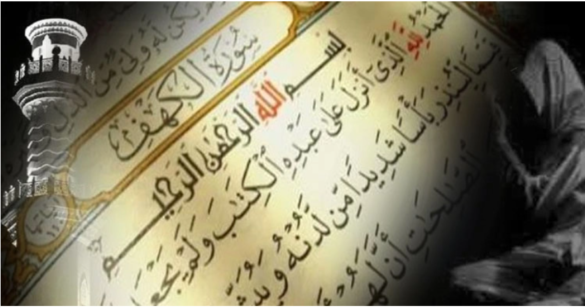 لَّهُ وَلِيٌّ مِّنَ الذُّلِّ
سُورَةُ الْكَهْفِ
بِسْمِ اللَّهِ الرَّحْمَٰنِ الرَّحِيمِ
الْحَمْدُ لِلَّهِ الَّذِي أَنْزَلَ عَلَىٰ عَبْدِهِ الْكِتَابَ وَلَمْ يَجْعَل
قَيِّمًا لِّيُنذِرَ بَأْسًا شَدِيدًا مِّن لَّدُنْهُ وَيُبَشِّرَ
الصَّالِحَاتِ أَنَّ لَهُمْ